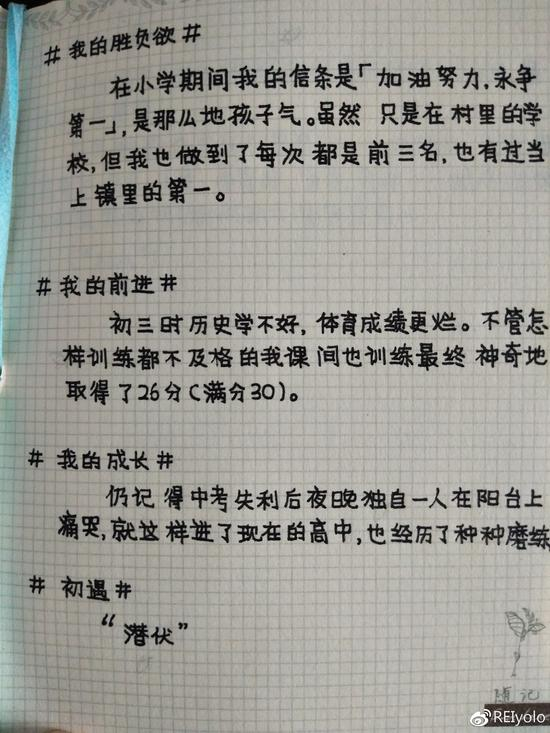 #我的胜负欲#
在小学期间我的信条是「加油努力,永争
第一」,是那么地孩子气。虽然 只是在村里的学
校,但我也做到了每次都是前三名,也有过当
上镇里的第一。
#我的前进#
初三时历史学不好,体育成绩更烂。不管怎
样训练都不及格的我课间也训练最终 神奇地
取得了26分(满分30)。
#我的成长#
仍记得中考失利后夜晚独自一人在阳台上
痛哭,就这样进了现在的高中,也经历了种种磨练
#初遇#
“潜伏”
随记
@REIyolo